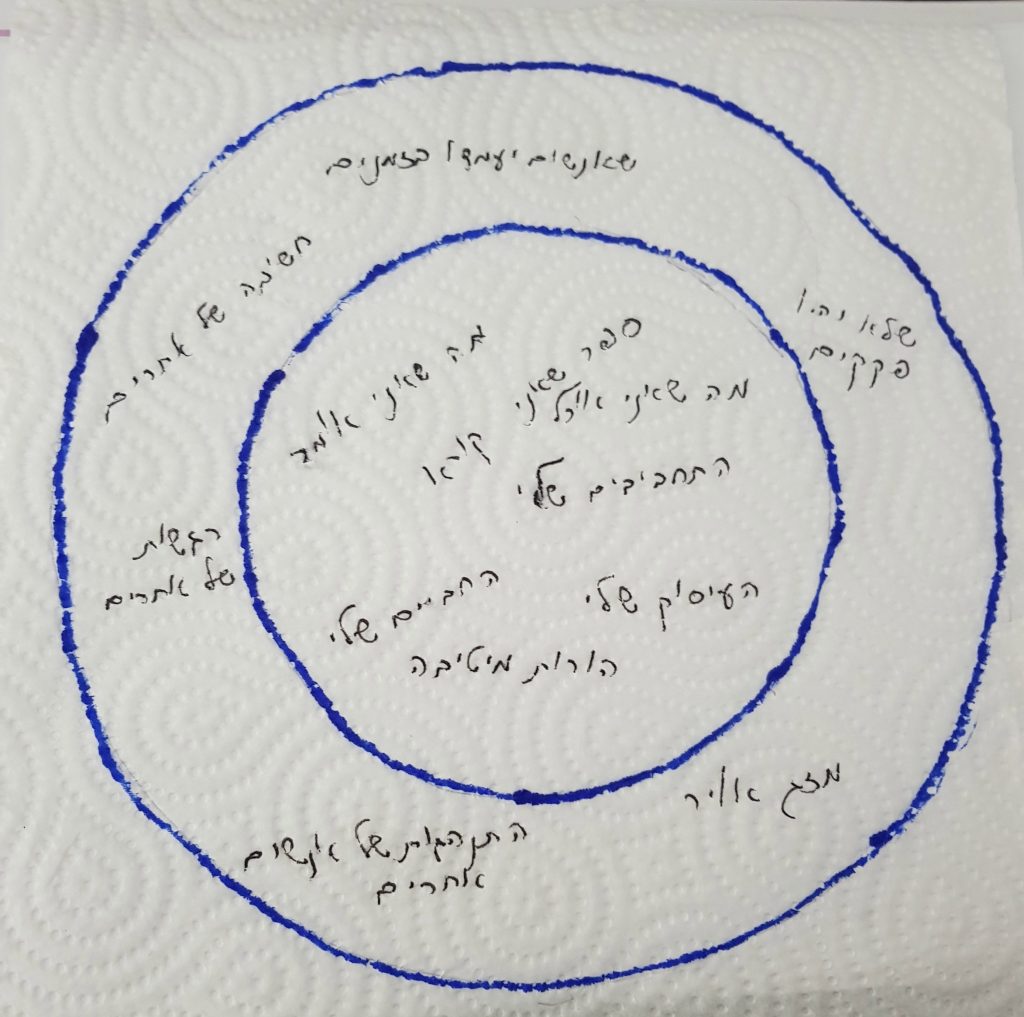 שאנשים יעמדו בזמנים
חשיבה של אחרים
שלא יהיו
פקקים
מה שאני אומר
ספר שאני
קורא
מה שאני אוכל
התחביבים שלי
רגשות
של אחרים
החברים שלי
העיסוק שלי
הורות מיטיבה
מזג אוויר
התנהגות של אנשים
אחרים